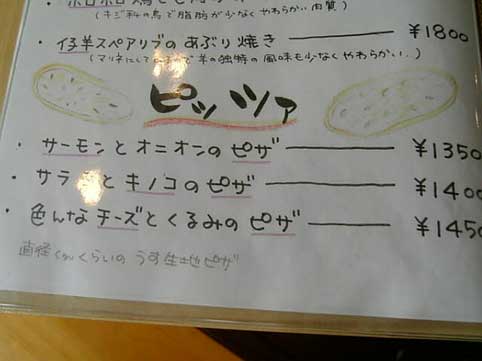 ・ホロホロ鶏
(キジ科の鳥で脂肪が少なくやわらかい肉質)
・仔羊スペアリブのあぶり焼き ¥1800
(マリネにして 羊の独特の風味も少なくやわらかい。)
ピッツァ
・サーモンとオニオンのピザ ¥1350
・サラ とキノコのピザ ¥1400
・色んなチーズとくるみのピザ ¥1450
直径 くらいの うす生地ピザ